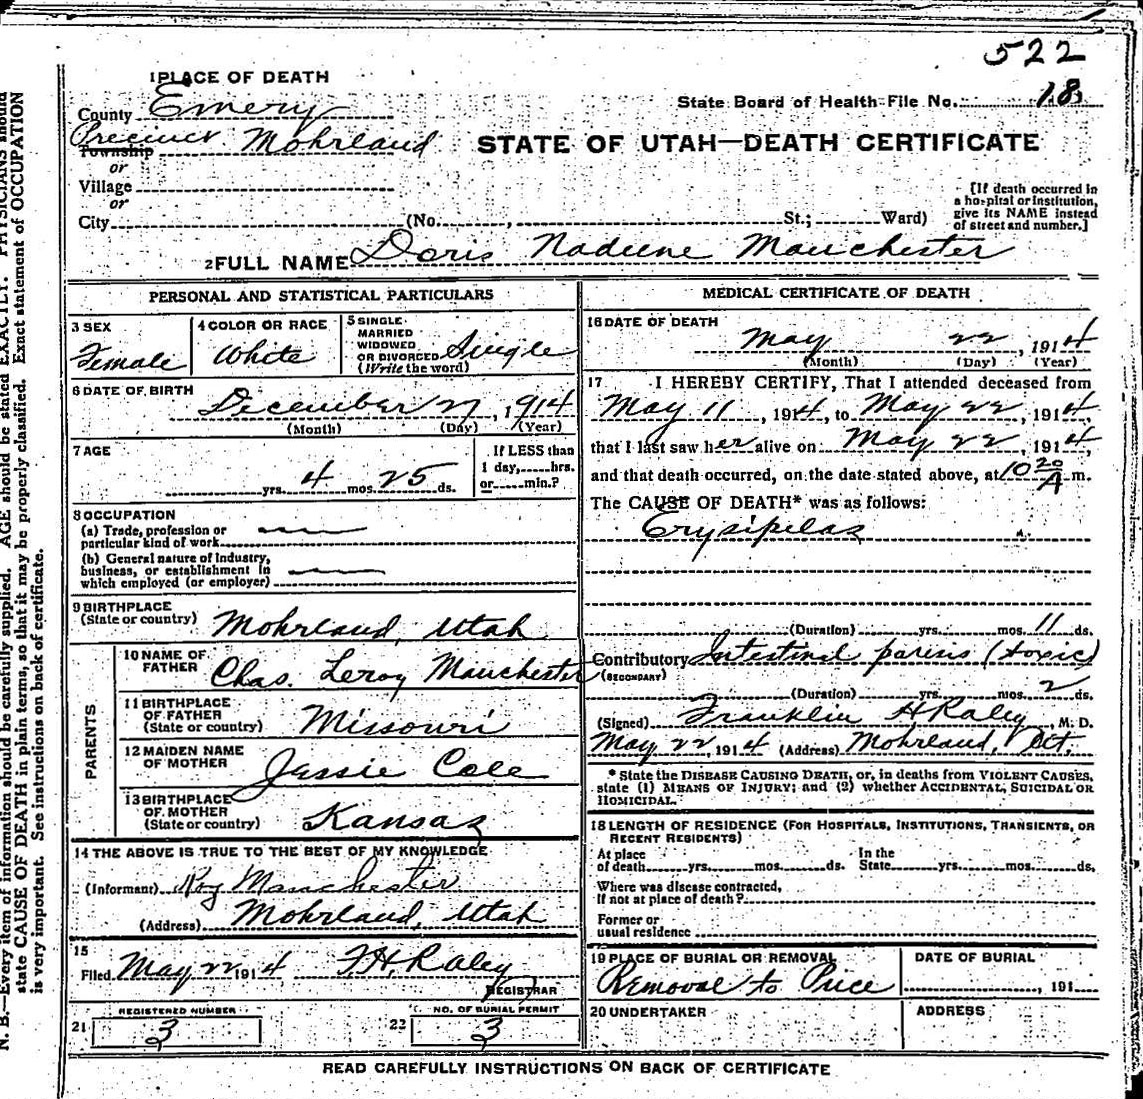 522
1 PLACE OF DEATH
County Emery
State Board of Health File No. 18
Precinct Mohrland
Township
STATE OF UTAH—DEATH CERTIFICATE
or
Village
or
City (No. , St.; Ward)
[If death occurred in
a hospital or institution,
give its NAME instead
of street and number.]
2 FULL NAME Doris Nadine Manchester
PERSONAL AND STATISTICAL PARTICULARS
3 SEX
Female
4 COLOR OR RACE
White
5 SINGLE
MARRIED
WIDOWED
OR DIVORCED
(Write the word)
Single
6 DATE OF BIRTH
December 27, 1914
(Month) (Day) (Year)
7 AGE
yrs. 4 mos. 25 ds.
If LESS than
1 day, hrs.
or min.?
8 OCCUPATION
(a) Trade, profession or
particular kind of work
(b) General nature of industry,
business, or establishment in
which employed (or employer)
9 BIRTHPLACE
(State or country) Mohrland, Utah
PARENTS
10 NAME OF
FATHER Chas. Leroy Manchester
11 BIRTHPLACE
OF FATHER
(State or country) Missouri
12 MAIDEN NAME
OF MOTHER Jessie Cole
13 BIRTHPLACE
OF MOTHER
(State or country) Kansas
14 THE ABOVE IS TRUE TO THE BEST OF MY KNOWLEDGE
(Informant) Roy Manchester
(Address) Mohrland, Utah
15
Filed May 22 1914 F.H. Raley
REGISTRAR
21 REGISTERED NUMBER
3
22 NO. OF BURIAL PERMIT
3
MEDICAL CERTIFICATE OF DEATH
16 DATE OF DEATH
May 22, 1914
(Month) (Day) (Year)
17 I HEREBY CERTIFY, That I attended deceased from
May 11, 1914, to May 22, 1914,
that I last saw her alive on May 22, 1914,
and that death occurred, on the date stated above, at 10 20 A m.
The CAUSE OF DEATH* was as follows:
Erysipelas
(Duration) yrs. mos. 11 ds.
Contributory Intestinal paresis (toxic)
(SECONDARY)
(Duration) yrs. mos. 2 ds.
(Signed) Franklin H Raley, M. D.
May 22 1914 (Address) Mohrland, Ut.
* State the DISEASE CAUSING DEATH, or, in deaths from VIOLENT CAUSES,
state (1) MEANS OF INJURY; and (2) whether ACCIDENTAL, SUICIDAL OR
HOMICIDAL.
18 LENGTH OF RESIDENCE (FOR HOSPITALS, INSTITUTIONS, TRANSIENTS, OR
RECENT RESIDENTS)
At place
of death yrs. mos. ds.
In the
State yrs. mos. ds.
Where was disease contracted,
if not at place of death?
Former or
usual residence
19 PLACE OF BURIAL OR REMOVAL
Removal to Price
DATE OF BURIAL
, 191
20 UNDERTAKER
ADDRESS
READ CAREFULLY INSTRUCTIONS ON BACK OF CERTIFICATE
N. B.—Every item of information should be carefully supplied. AGE should be stated EXACTLY. PHYSICIANS should
state CAUSE OF DEATH in plain terms, so that it may be properly classified. Exact statement of OCCUPATION
is very important. See instructions on back of certificate.